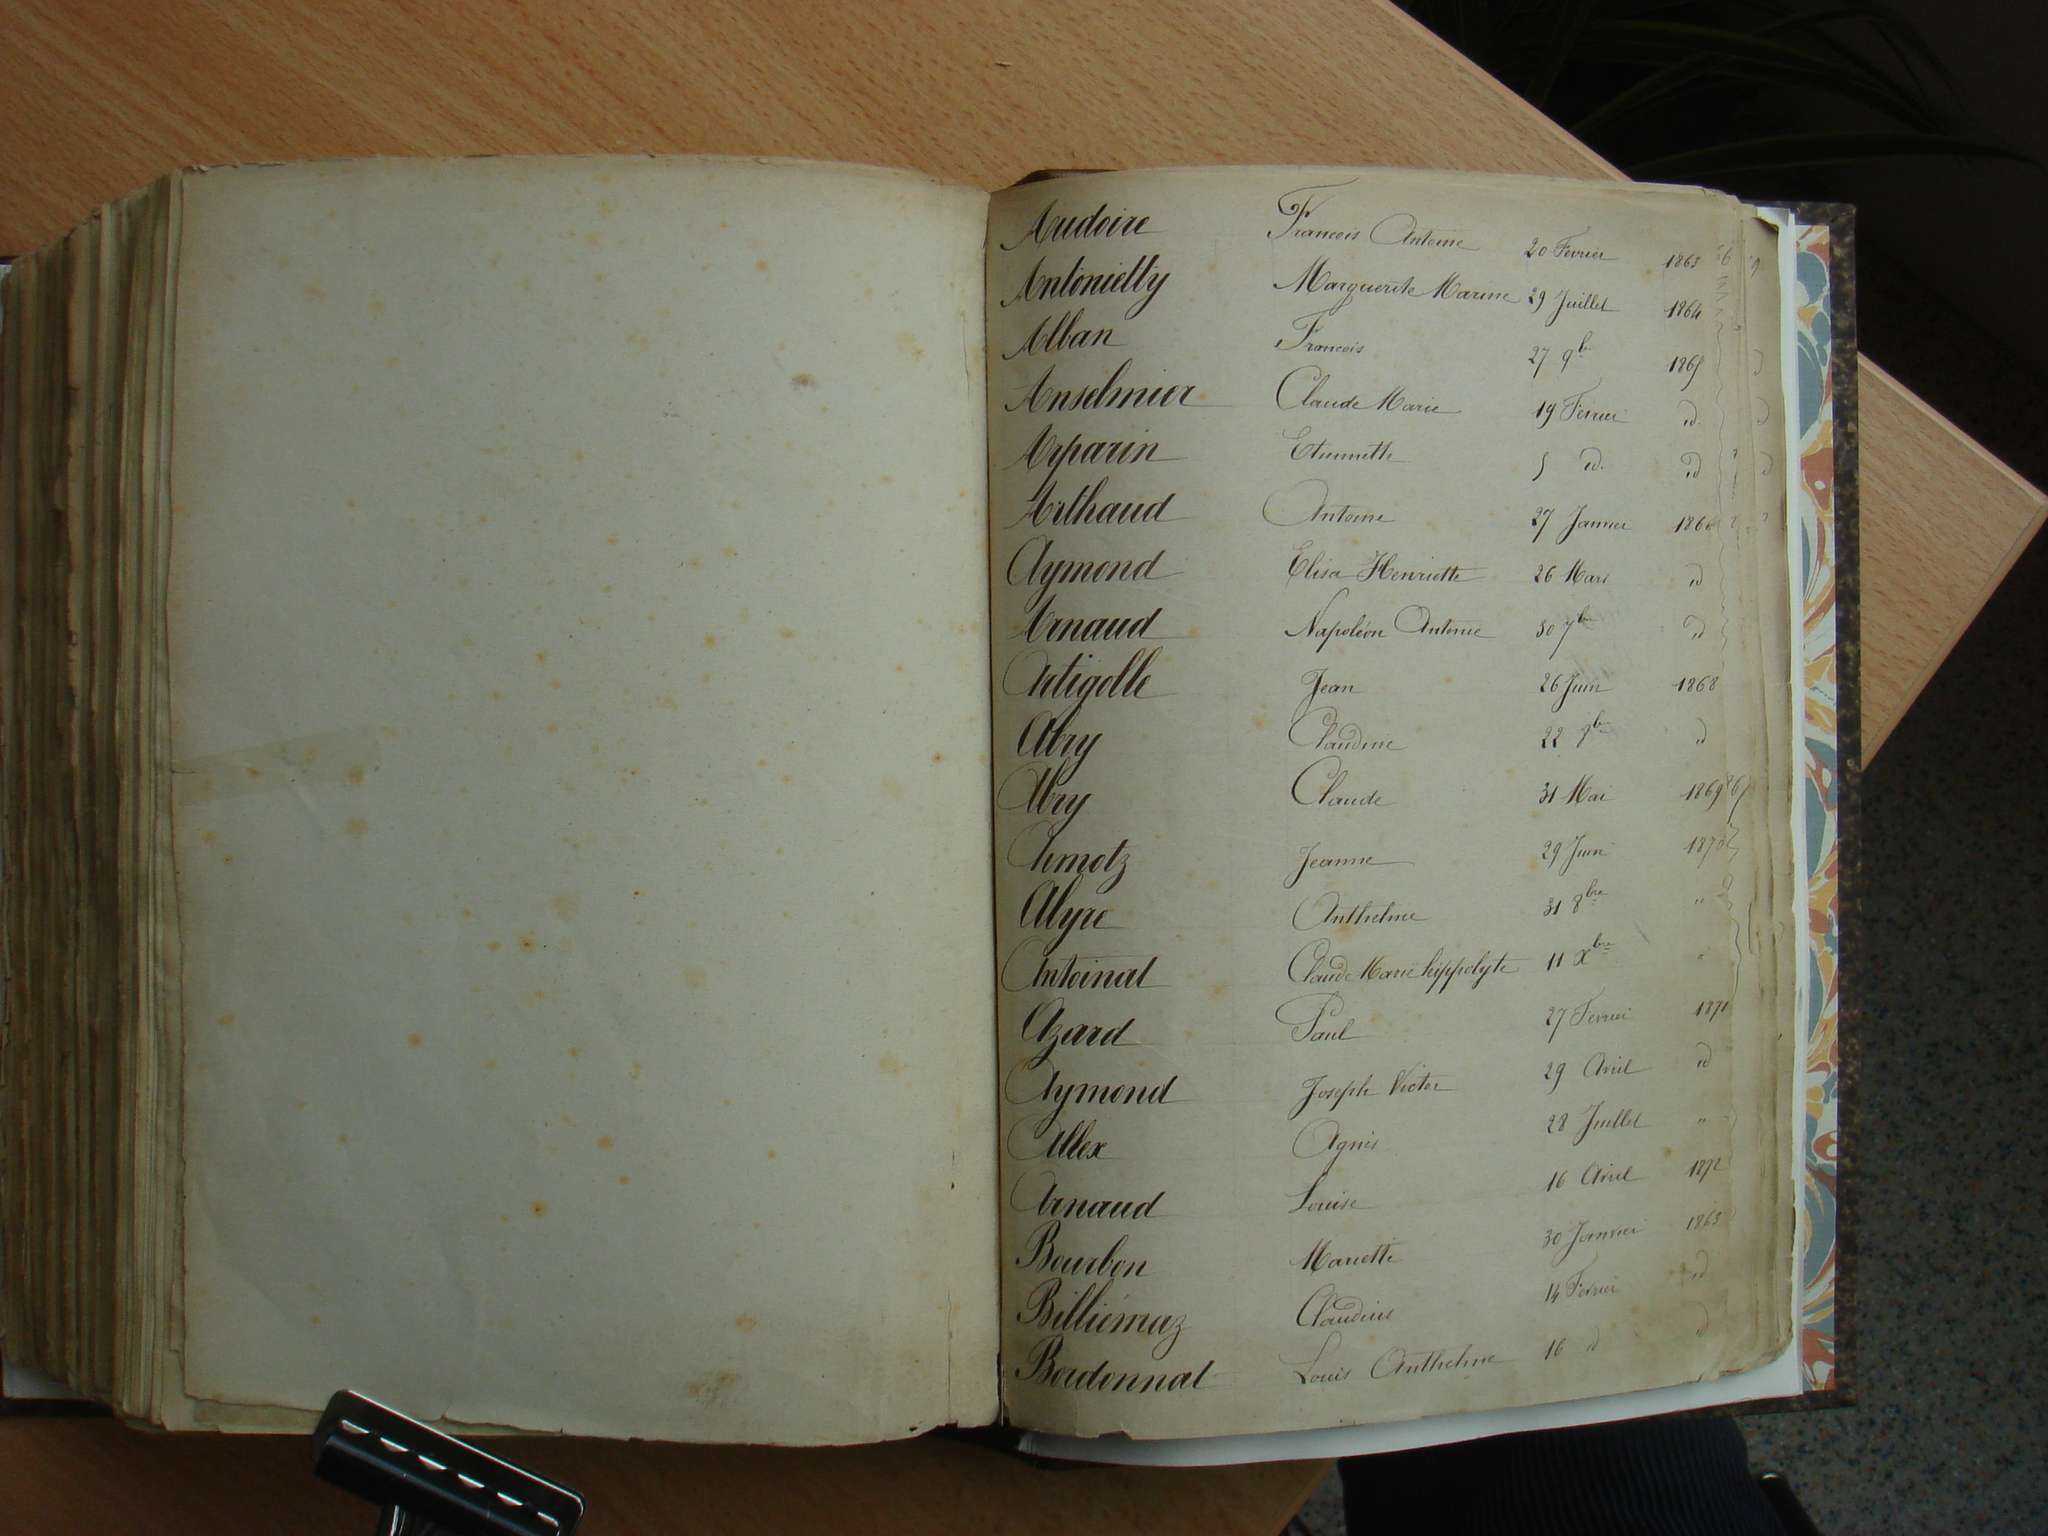 Audoire Francois Antoine 20 Fevrier 1863
Antonietty Marguerite Marine 29 Juillet 1864
Alban Francois 27 9b 1865
Anselmier Claude Marie 19 Fevrier id
Arparin Etiennette 5 id. id
Arthaud Antoine 27 Janvier 1866
Aymond Elisa Henriette 26 Mars id
Arnaud Napoléon Antoine 30 7bre id
Artigolle Jean 26 Juin 1868
Abry Claudine 22 9bre id
Abry Claude 31 Mai 1869
Jeanne 29 Juin 1870
Alyre Anthelme 31 8bre "
Antoinat Claude Marie hippolyte 11 Xbre "
Azard Paul 27 Fevrier 1871
Aymond Joseph Victor 29 Avril id
Allex Agnès 28 Juillet "
Arnaud Louise 16 Avril 1872
Bourbon Mariette 30 Janvier 1863
Billiémaz Claudius 14 Fevrier id
Bordonnat Louis Anthelme 16 id id